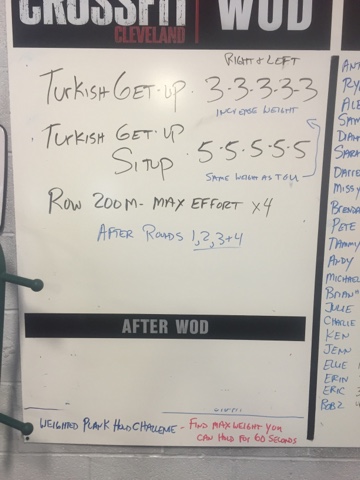 CROSSFIT WOD
CLEVELAND
RIGHT & LEFT
TURKISH GET-UP 3-3-3-3-3
INCREASE WEIGHT
TURKISH GET-UP
SITUP 5-5-5-5-5
SAME WEIGHT AS TGU
ROW 200M - MAX EFFORT x4
AFTER ROUNDS 1,2,3+4
AFTER WOD
WEIGHTED PLANK HOLD CHALLENGE - FIND MAX WEIGHT YOU
CAN HOLD FOR 60 SECONDS
ANT
RY
ALE
SAM
DAN
SARA
DAVE
MISSY
BRENDA
PETE
TAMMY
ANDY
MICHAEL
BRIAN
JULIE
CHARLIE
KEN
JENN
ELLIE
ERIN
ERIC
ROB2